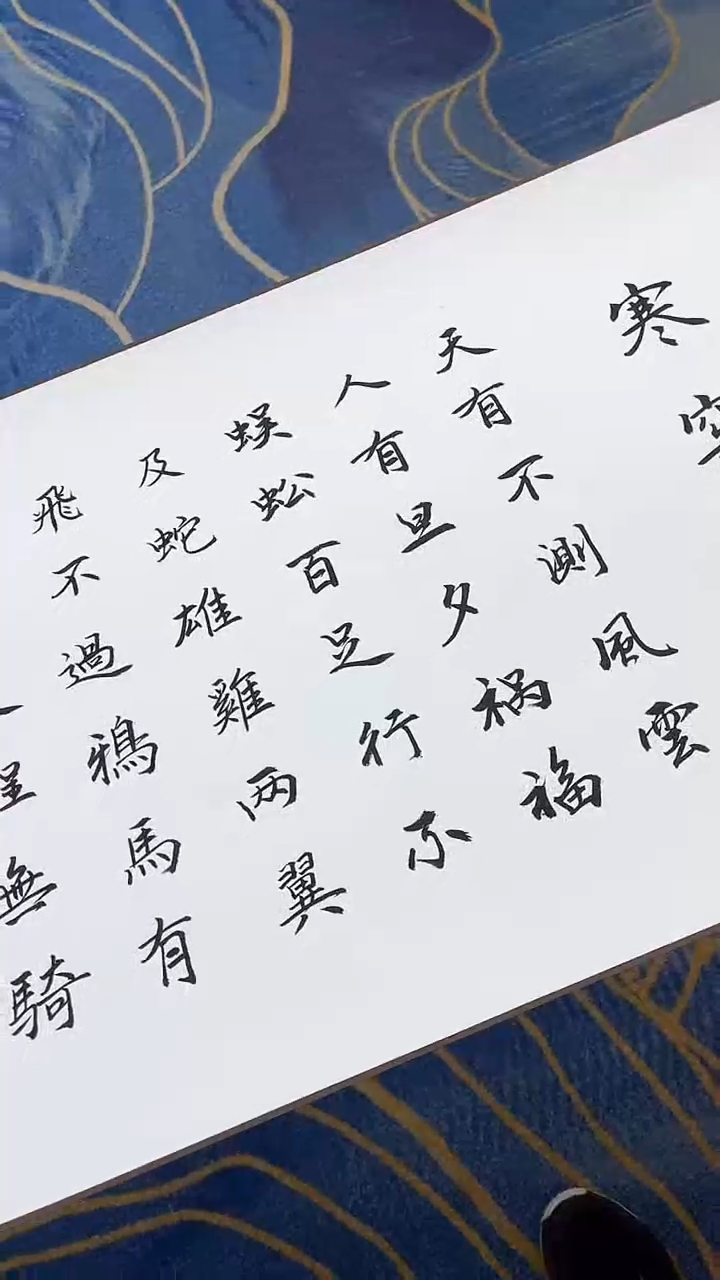 寒
天有不測風雲
人有旦夕祸福
蜈蚣百足行不
及蛇雄雞两翼
飛不過鴉馬有
無騎